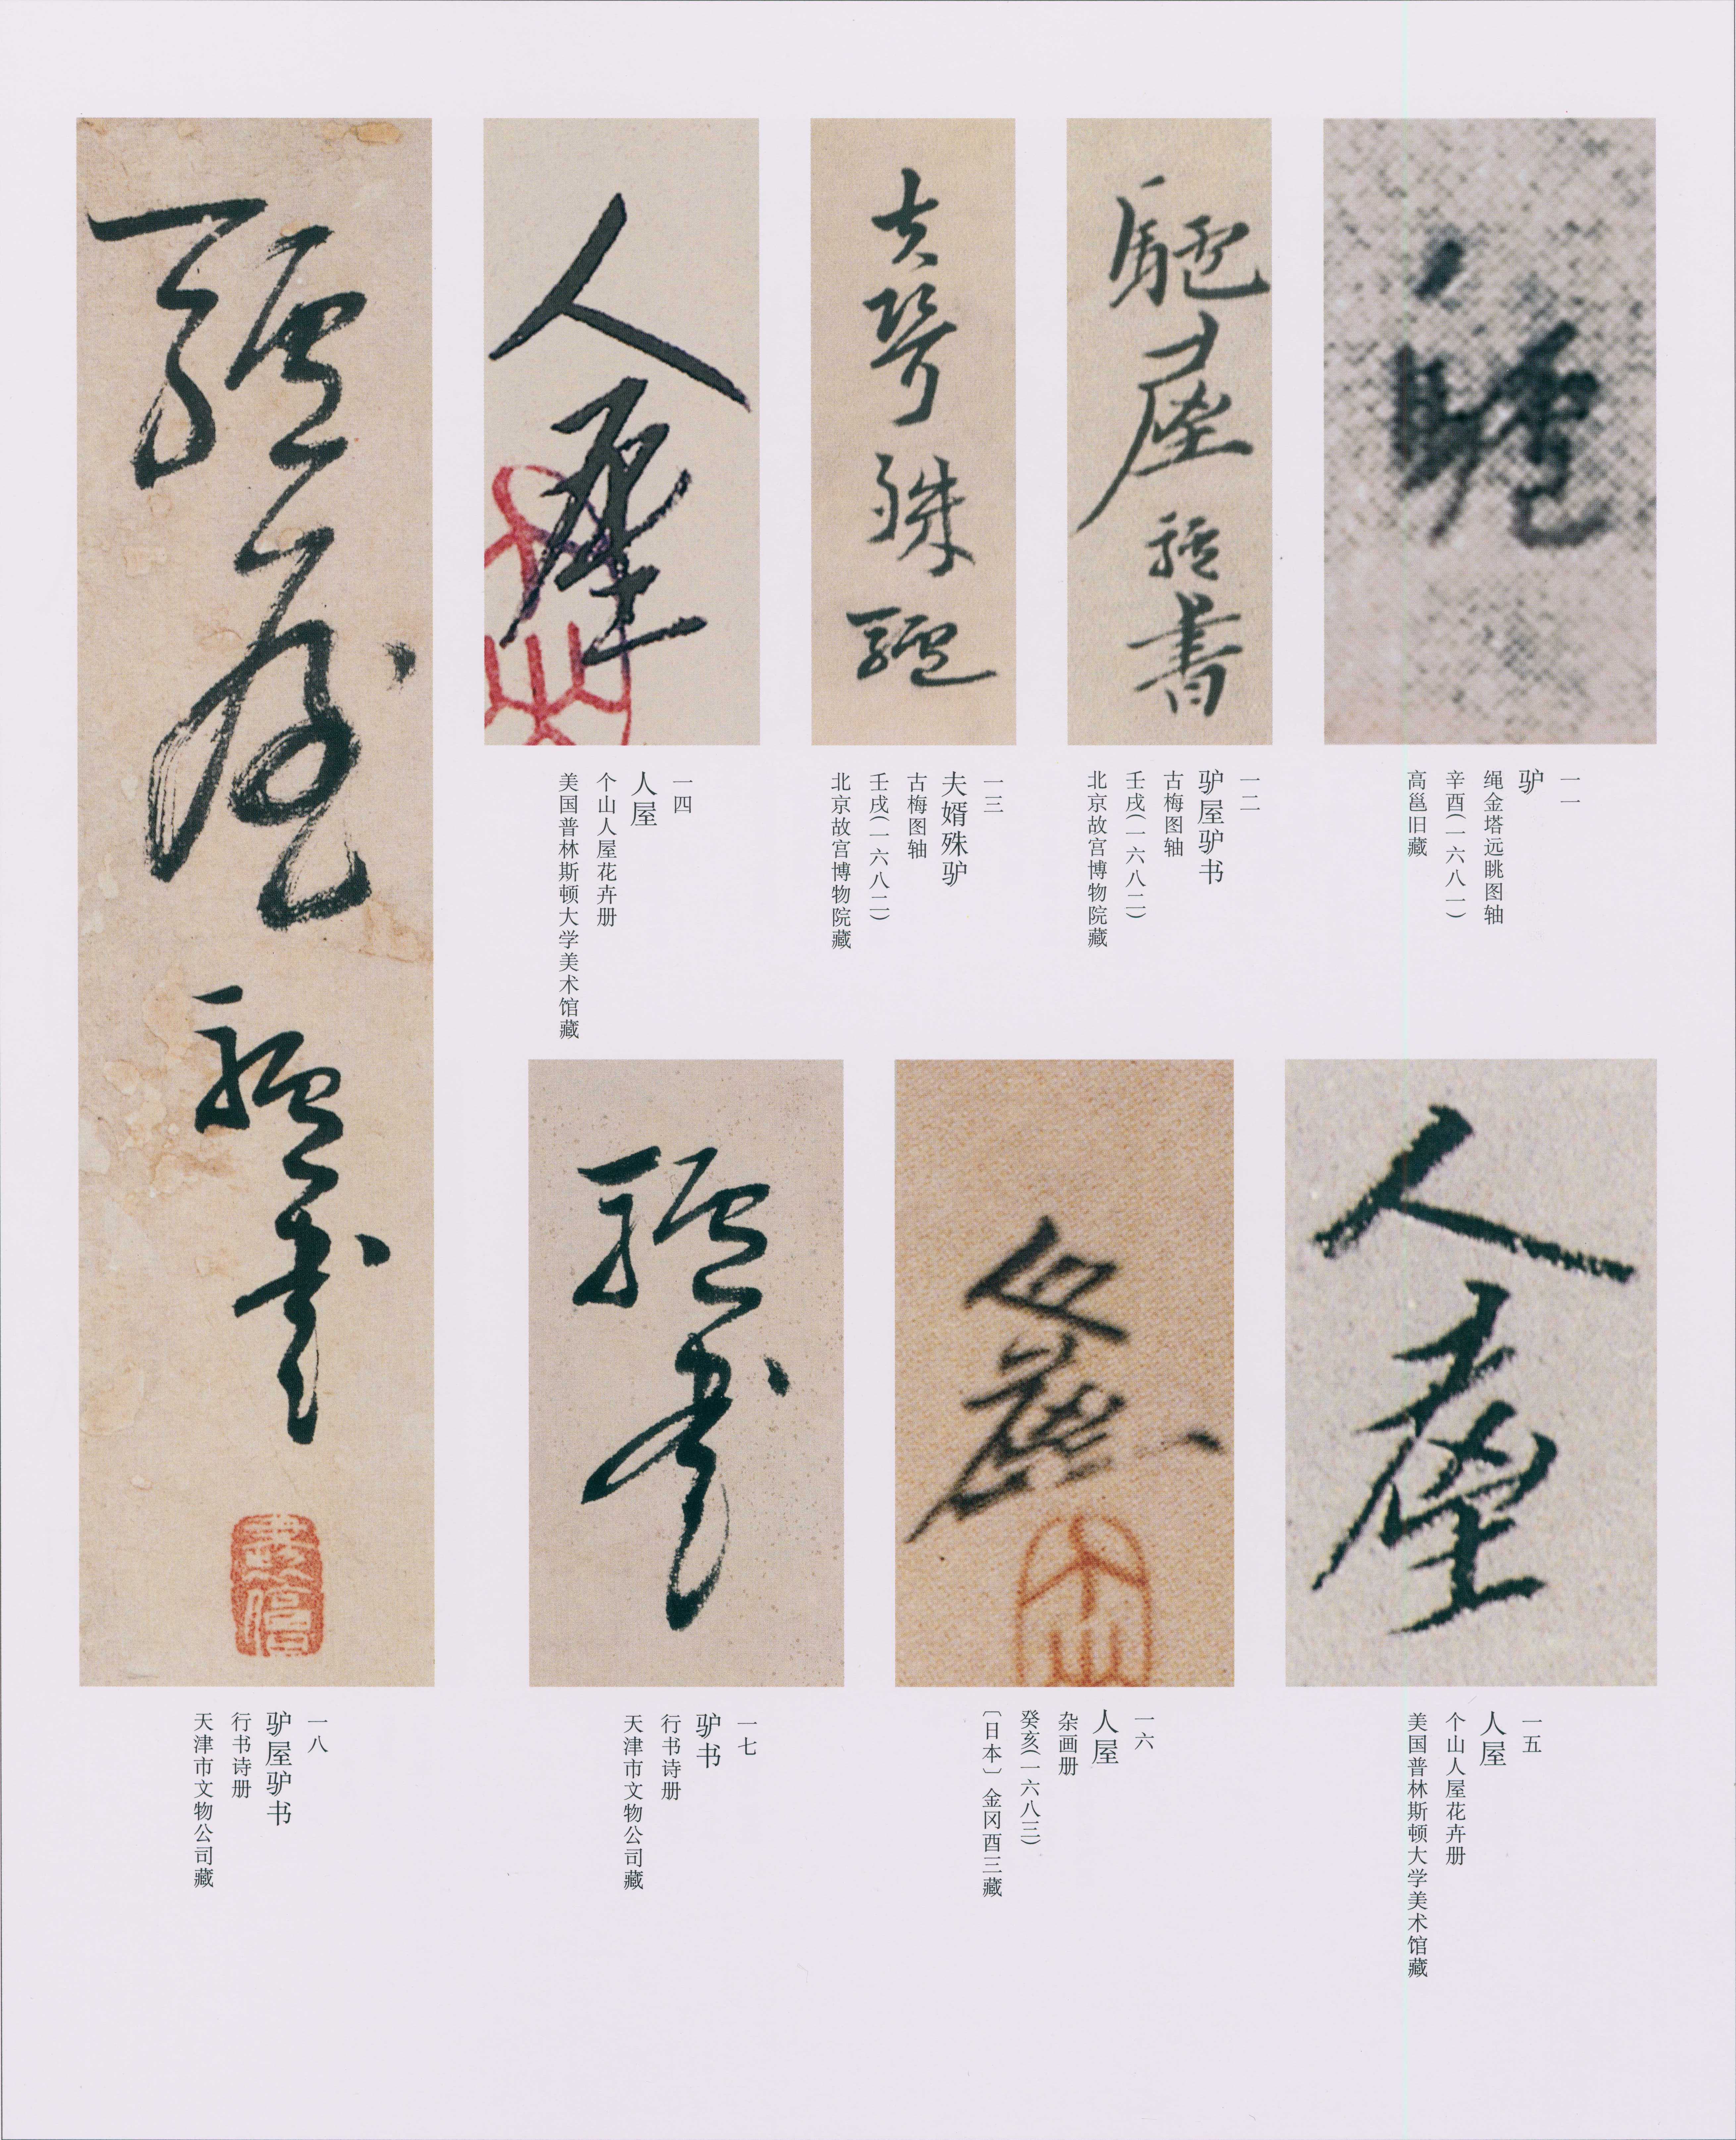 驢
一一
驴
绳金塔远眺图轴
辛酉(一六八一)
高邕旧藏
驢屋驢書
一二
驴屋驴书
古梅图轴
壬戌(一六八二)
北京故宫博物院藏
夫壻殊驢
一三
夫婿殊驴
古梅图轴
壬戌(一六八二)
北京故宫博物院藏
人屋
一四
人屋
个山人屋花卉册
美国普林斯顿大学美术馆藏
人屋
一五
人屋
个山人屋花卉册
美国普林斯顿大学美术馆藏
人屋
一六
人屋
杂画册
癸亥(一六八三)
〔日本〕金冈酉三藏
驢書
一七
驴书
行书诗册
天津市文物公司藏
驢屋驢書
一八
驴屋驴书
行书诗册
天津市文物公司藏